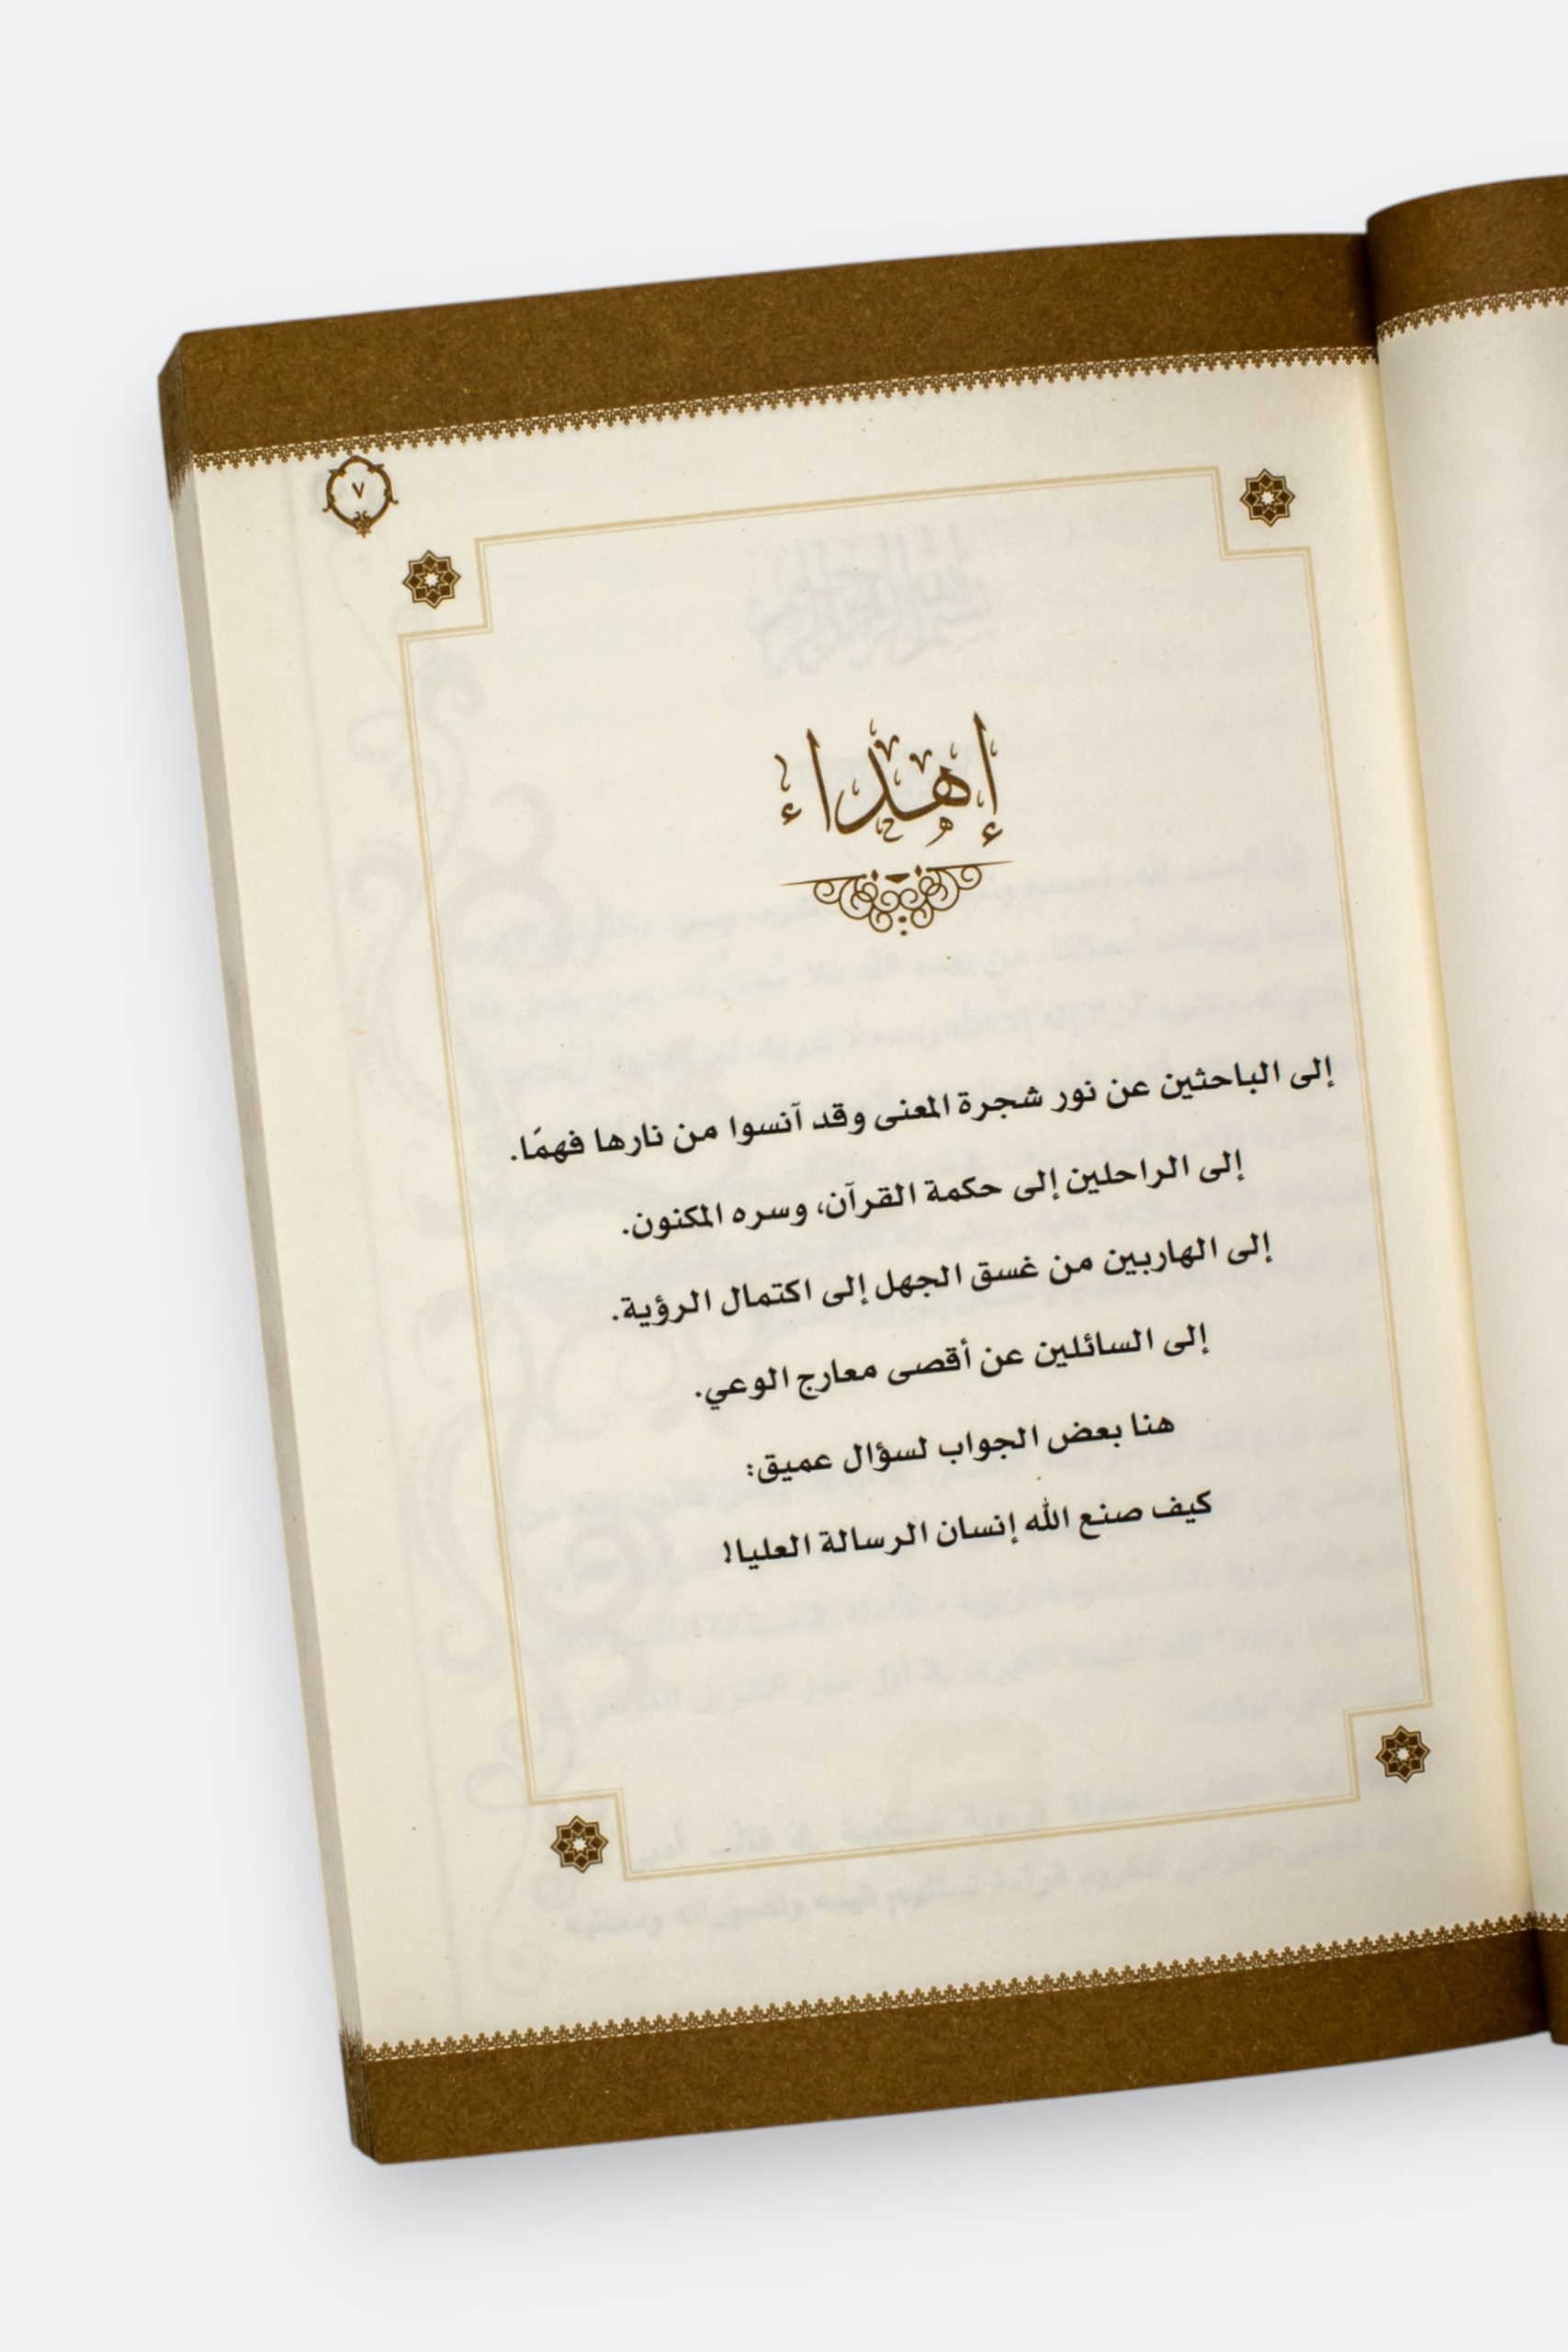 ٧
إهداء
إلى الباحثين عن نور شجرة المعنى وقد آنسوا من نارها فهمًا.
إلى الراحلين إلى حكمة القرآن، وسره المكنون.
إلى الهاربين من غسق الجهل إلى اكتمال الرؤية.
إلى السائلين عن أقصى معارج الوعي.
هنا بعض الجواب لسؤال عميق:
كيف صنع الله إنسان الرسالة العليا!